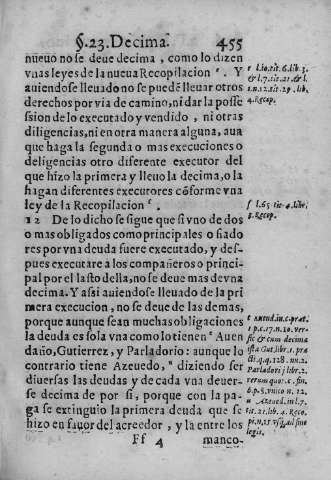 §.23. Decima. 455
nueuo no se deue decima, como lo dizen
vnas leyes de la nueua Recopilacion e. Y
auiendose lleuado no se puedē lleuar otros
derechos por via de camino, ni dar la posse
ssion de lo executado y vendido, ni otras
diligencias, ni en otra manera alguna, aun
que haga la segunda o mas execuciones o
deligencias otro diferente executor del
que hizo la primera y lleuo la decima, o la
hagan diferentes executores cōforme vna
ley de la Recopilacion f.
12 De lo dicho se sigue que si vno de dos
o mas obligados como principales o fiado
res por vna deuda fuere executado, y des-
pues executare a los compañeros o princi-
pal por el lasto della, no se deue mas de vna
decima. Y assi auiendose lleuado de la pri
mera execucion, no se deue de las demas,
porque aunque sean muchas obligaciones
la deuda es sola vna como lo tienen t Auen
daño, Gutierrez, y Parladorio: aunque lo
contrario tiene Azeuedo, u diziendo ser
diuersas las deudas y de cada vna deuer-
se decima de por si, porque con la pa-
ga se extinguio la primera deuda que se
hizo en fauor del acreedor, y la entre los
Ff 4 manco-
e l.10. tit. 6. lib. 3.
& l.7. tit. 21. & l.
1. n. 12. tit. 29. lib.
4. Recop.
f l.65. tit. 4. lib.
3. Recop.
t Auend. in c. præt.
1. p. c. 17. n. 20. ver-
sic & cum decima
ista Gut. lib. 1. pra
cti. q. q. 128. nu. 2.
Parladori j libr. 2.
rerum quot. c. fin.
6. p. 5. vnico n. 12.
u Azeued. in l. 7.
tit. 21. lib. 4. Reco
pi. n. 15. vsq; ad fine
legis.